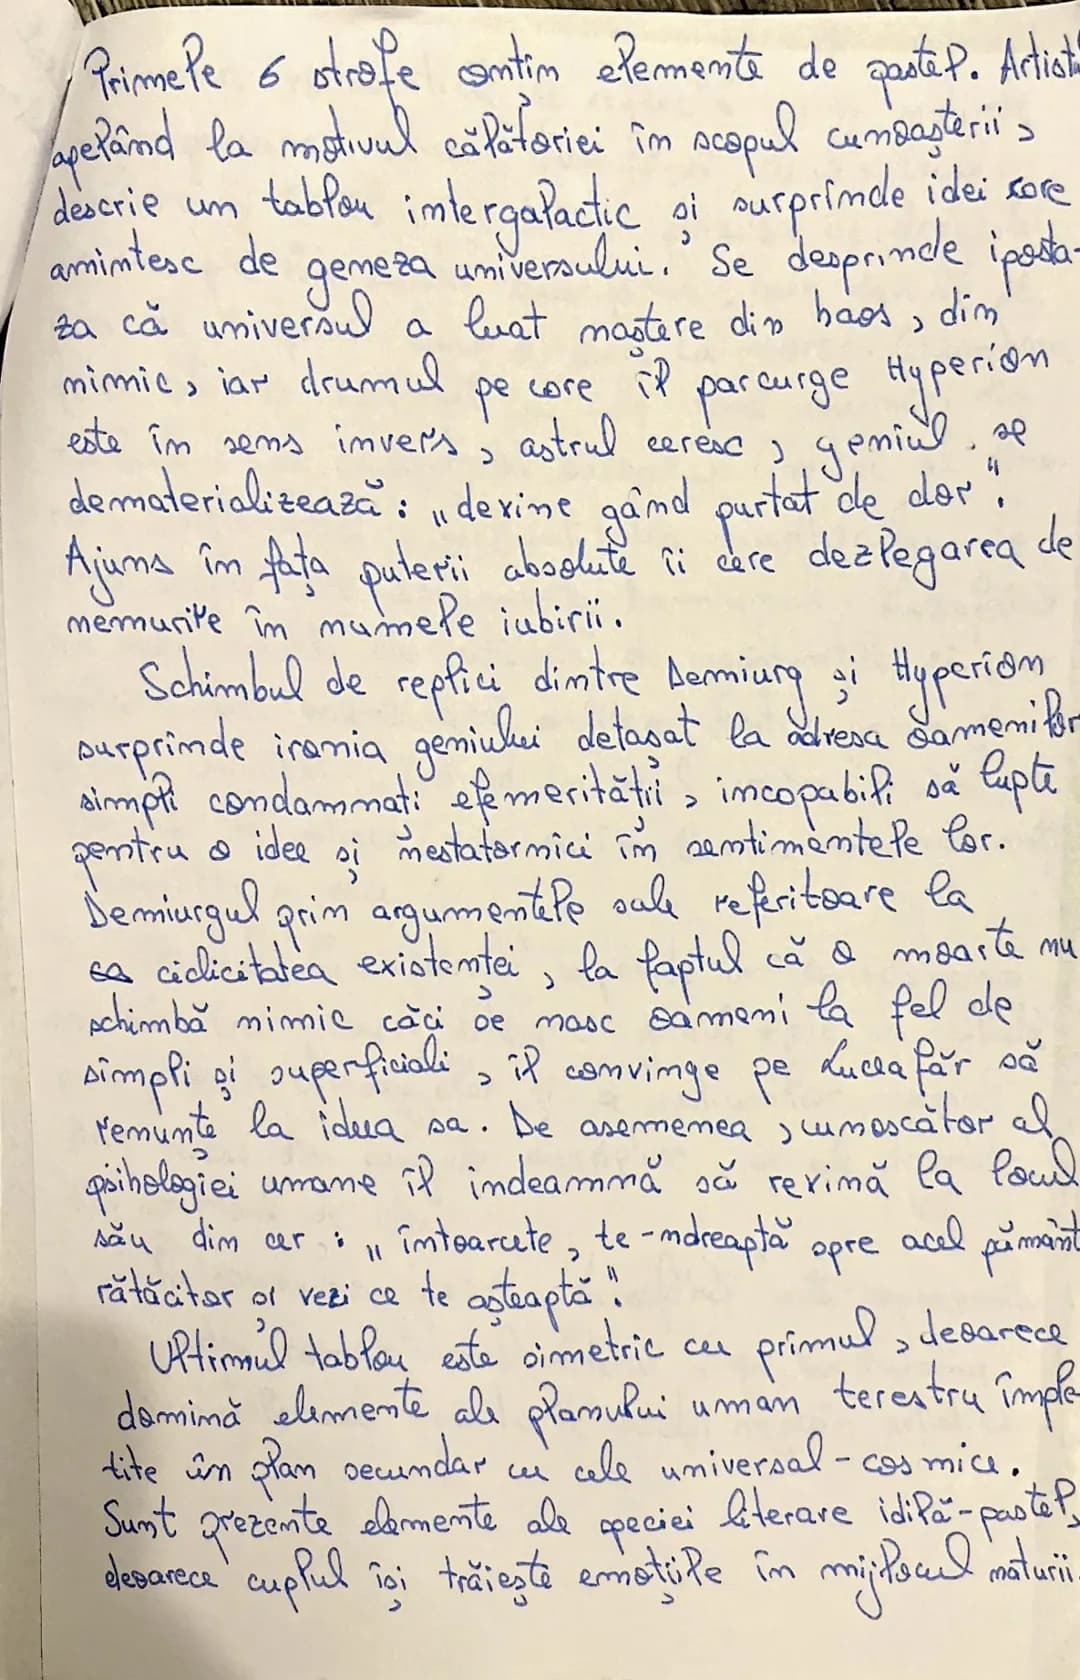 Primele 6 strofe conțin elemente de pastel. Artistul
apelând la motivul călătoriei în scopul cunoașterii,
descrie un tablou intergalactic și surprinde idei care
amintesc de geneza universului. Se desprinde iposta-
za că universul a luat naștere din haos, din
nimic, iar drumul pe care îl parcurge Hyperion
este în sens invers, astrul ceresc, geniul se
dematerializează: „devine gând purtat de dor".
Ajuns în fața puterii absolute îi cere dezlegarea de
nemurire în numele iubirii.
Schimbul de replici dintre Demiurg și Hyperion
surprinde ironia geniului detașat la adresa oamenilor
simpli condamnați efemerității, incapabili să lupte
pentru o idee și nestatornici în sentimentele lor.
Demiurgul prin argumentele sale referitoare la
ciclicitatea existenței, la faptul că o moarte nu
schimbă nimic căci se nasc oameni la fel de
simpli și superficiali, îl convinge pe Luceafăr să
renunțe la ideea sa. De asemenea, cunoscător al
psihologiei umane îl indeamnă să revină la locul
său din cer: „întoarcete, te-ndreaptă spre acel pământ
rătăcitor și vezi ce te așteaptă".
Ultimul tablou este simetric cu primul, deoarece
domină elemente ale planului uman terestru împle-
tite în plan secundar cu cele universal-cosmice.
Sunt prezente elemente ale speciei literare idilă-pastel,
deoarece cuplul își trăiește emoțiile în mijlocul naturii.